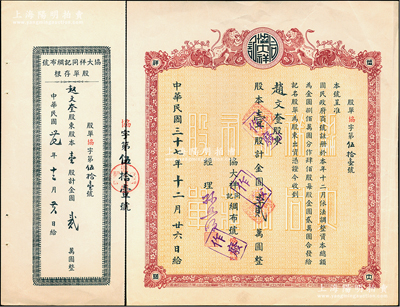 協大祥
股單協字第伍拾壹號
本號呈准
國民政府商號註冊於本年十二月依法調整資本總額
為金圓捌佰萬圓分作肆佰股每股金圓貳萬圓合發給
記名股單為股東出資憑證今收到
趙文奎股東
股本壹股計金圓貳萬圓整
協大祥同記綢布號
經理
中華民國三十七年十二月廿六日給
作廢
作廢
協字第伍拾壹號
協大祥同記綢布號
股單存根
股單協字第伍拾壹號
趙文奎股東股本壹股計金圓貳萬圓整
中華民國
十二月
日給